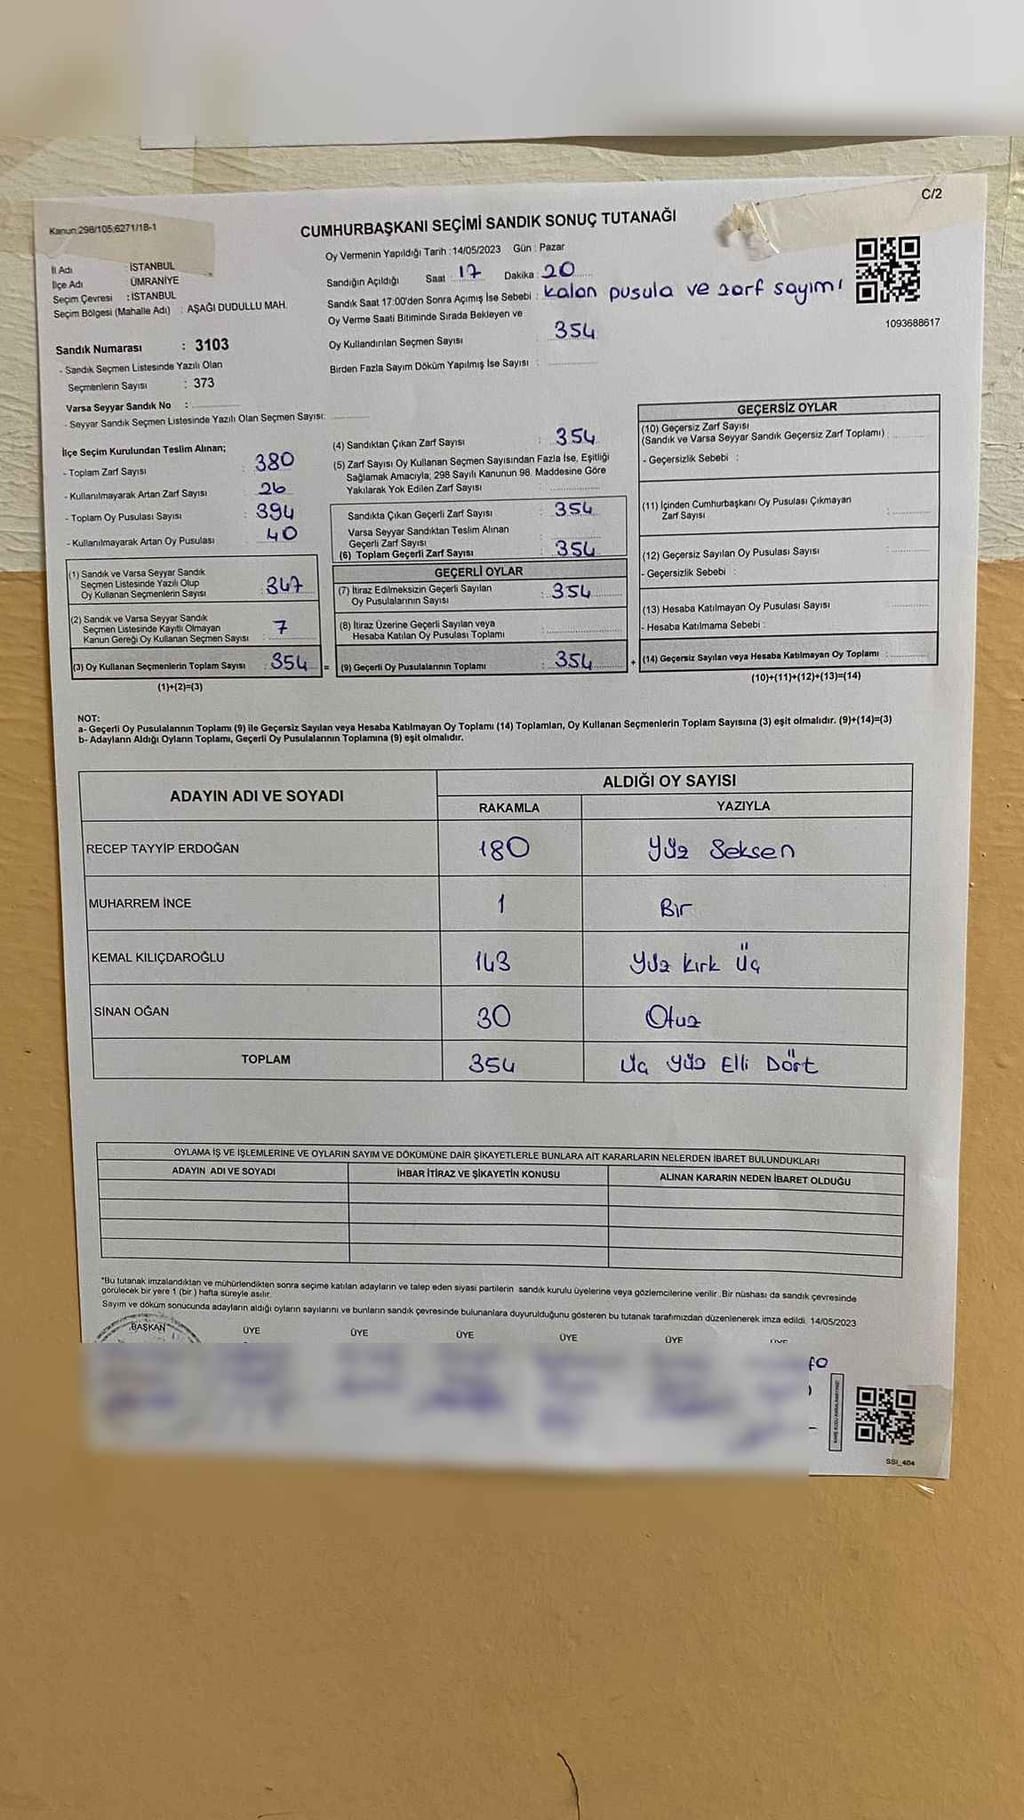 C/2
Kanun:298/105;6271/18-1
CUMHURBAŞKANI SEÇİMİ SANDIK SONUÇ TUTANAĞI
Oy Vermenin Yapıldığı Tarih : 14/05/2023 Gün : Pazar
İl Adı : İSTANBUL
İlçe Adı : ÜMRANİYE
Seçim Çevresi : İSTANBUL
Seçim Bölgesi (Mahalle Adı) : AŞAĞI DUDULLU MAH.
Sandığın Açıldığı Saat : 17 Dakika : 20
Sandık Saat 17:00'den Sonra Açımış İse Sebebi : kalan pusula ve zarf sayımı
Oy Verme Saati Bitiminde Sırada Bekleyen ve
Oy Kullandırılan Seçmen Sayısı : 354
Birden Fazla Sayım Döküm Yapılmış İse Sayısı :
1093688617
Sandık Numarası : 3103
- Sandık Seçmen Listesinde Yazılı Olan
Seçmenlerin Sayısı : 373
Varsa Seyyar Sandık No :
- Seyyar Sandık Seçmen Listesinde Yazılı Olan Seçmen Sayısı:
İlçe Seçim Kurulundan Teslim Alınan;
- Toplam Zarf Sayısı : 380
- Kullanılmayarak Artan Zarf Sayısı : 26
- Toplam Oy Pusulası Sayısı : 394
- Kullanılmayarak Artan Oy Pusulası : 40
(1) Sandık ve Varsa Seyyar Sandık
Seçmen Listesinde Yazılı Olup
Oy Kullanan Seçmenlerin Sayısı : 347
(2) Sandık ve Varsa Seyyar Sandık
Seçmen Listesinde Kayıtlı Olmayan
Kanun Gereği Oy Kullanan Seçmen Sayısı : 7
(3) Oy Kullanan Seçmenlerin Toplam Sayısı : 354 =
(1)+(2)=(3)
(4) Sandıktan Çıkan Zarf Sayısı : 354
(5) Zarf Sayısı Oy Kullanan Seçmen Sayısından Fazla İse, Eşitliği
Sağlamak Amacıyla; 298 Sayılı Kanunun 98. Maddesine Göre
Yakılarak Yok Edilen Zarf Sayısı :
Sandıkta Çıkan Geçerli Zarf Sayısı : 354
Varsa Seyyar Sandıktan Teslim Alınan
Geçerli Zarf Sayısı :
(6) Toplam Geçerli Zarf Sayısı : 354
GEÇERLİ OYLAR
(7) İtiraz Edilmeksizin Geçerli Sayılan
Oy Pusulalarının Sayısı : 354
(8) İtiraz Üzerine Geçerli Sayılan veya
Hesaba Katılan Oy Pusulası Toplamı :
(9) Geçerli Oy Pusulalarının Toplamı : 354 +
GEÇERSİZ OYLAR
(10) Geçersiz Zarf Sayısı
(Sandık ve Varsa Seyyar Sandık Geçersiz Zarf Toplamı) :
- Geçersizlik Sebebi :
(11) İçinden Cumhurbaşkanı Oy Pusulası Çıkmayan
Zarf Sayısı :
(12) Geçersiz Sayılan Oy Pusulası Sayısı :
- Geçersizlik Sebebi :
(13) Hesaba Katılmayan Oy Pusulası Sayısı :
- Hesaba Katılmama Sebebi :
(14) Geçersiz Sayılan veya Hesaba Katılmayan Oy Toplamı :
(10)+(11)+(12)+(13)=(14)
NOT:
a- Geçerli Oy Pusulalarının Toplamı (9) ile Geçersiz Sayılan veya Hesaba Katılmayan Oy Toplamı (14) Toplamları, Oy Kullanan Seçmenlerin Toplam Sayısına (3) eşit olmalıdır. (9)+(14)=(3)
b- Adayların Aldığı Oyların Toplamı, Geçerli Oy Pusulalarının Toplamına (9) eşit olmalıdır.
ADAYIN ADI VE SOYADI ALDIĞI OY SAYISI
RAKAMLA YAZIYLA
RECEP TAYYİP ERDOĞAN 180 Yüz Seksen
MUHARREM İNCE 1 Bir
KEMAL KILIÇDAROĞLU 143 Yüz kırk üç
SİNAN OĞAN 30 Otuz
TOPLAM 354 üç yüz Elli Dört
OYLAMA İŞ VE İŞLEMLERİNE VE OYLARIN SAYIM VE DÖKÜMÜNE DAİR ŞİKAYETLERLE BUNLARA AİT KARARLARIN NELERDEN İBARET BULUNDUKLARI
ADAYIN ADI VE SOYADI İHBAR İTİRAZ VE ŞİKAYETİN KONUSU ALINAN KARARIN NEDEN İBARET OLDUĞU
*Bu tutanak imzalandıktan ve mühürlendikten sonra seçime katılan adayların ve talep eden siyasi partilerin sandık kurulu üyelerine veya gözlemcilerine verilir. Bir nüshası da sandık çevresinde
görülecek bir yere 1 (bir ) hafta süreyle asılır.
Sayım ve döküm sonucunda adayların aldığı oyların sayılarını ve bunların sandık çevresinde bulunanlara duyurulduğunu gösteren bu tutanak tarafımızdan düzenlenerek imza edildi. 14/05/2023
BAŞKAN ÜYE ÜYE ÜYE ÜYE ÜYE
SSI_404